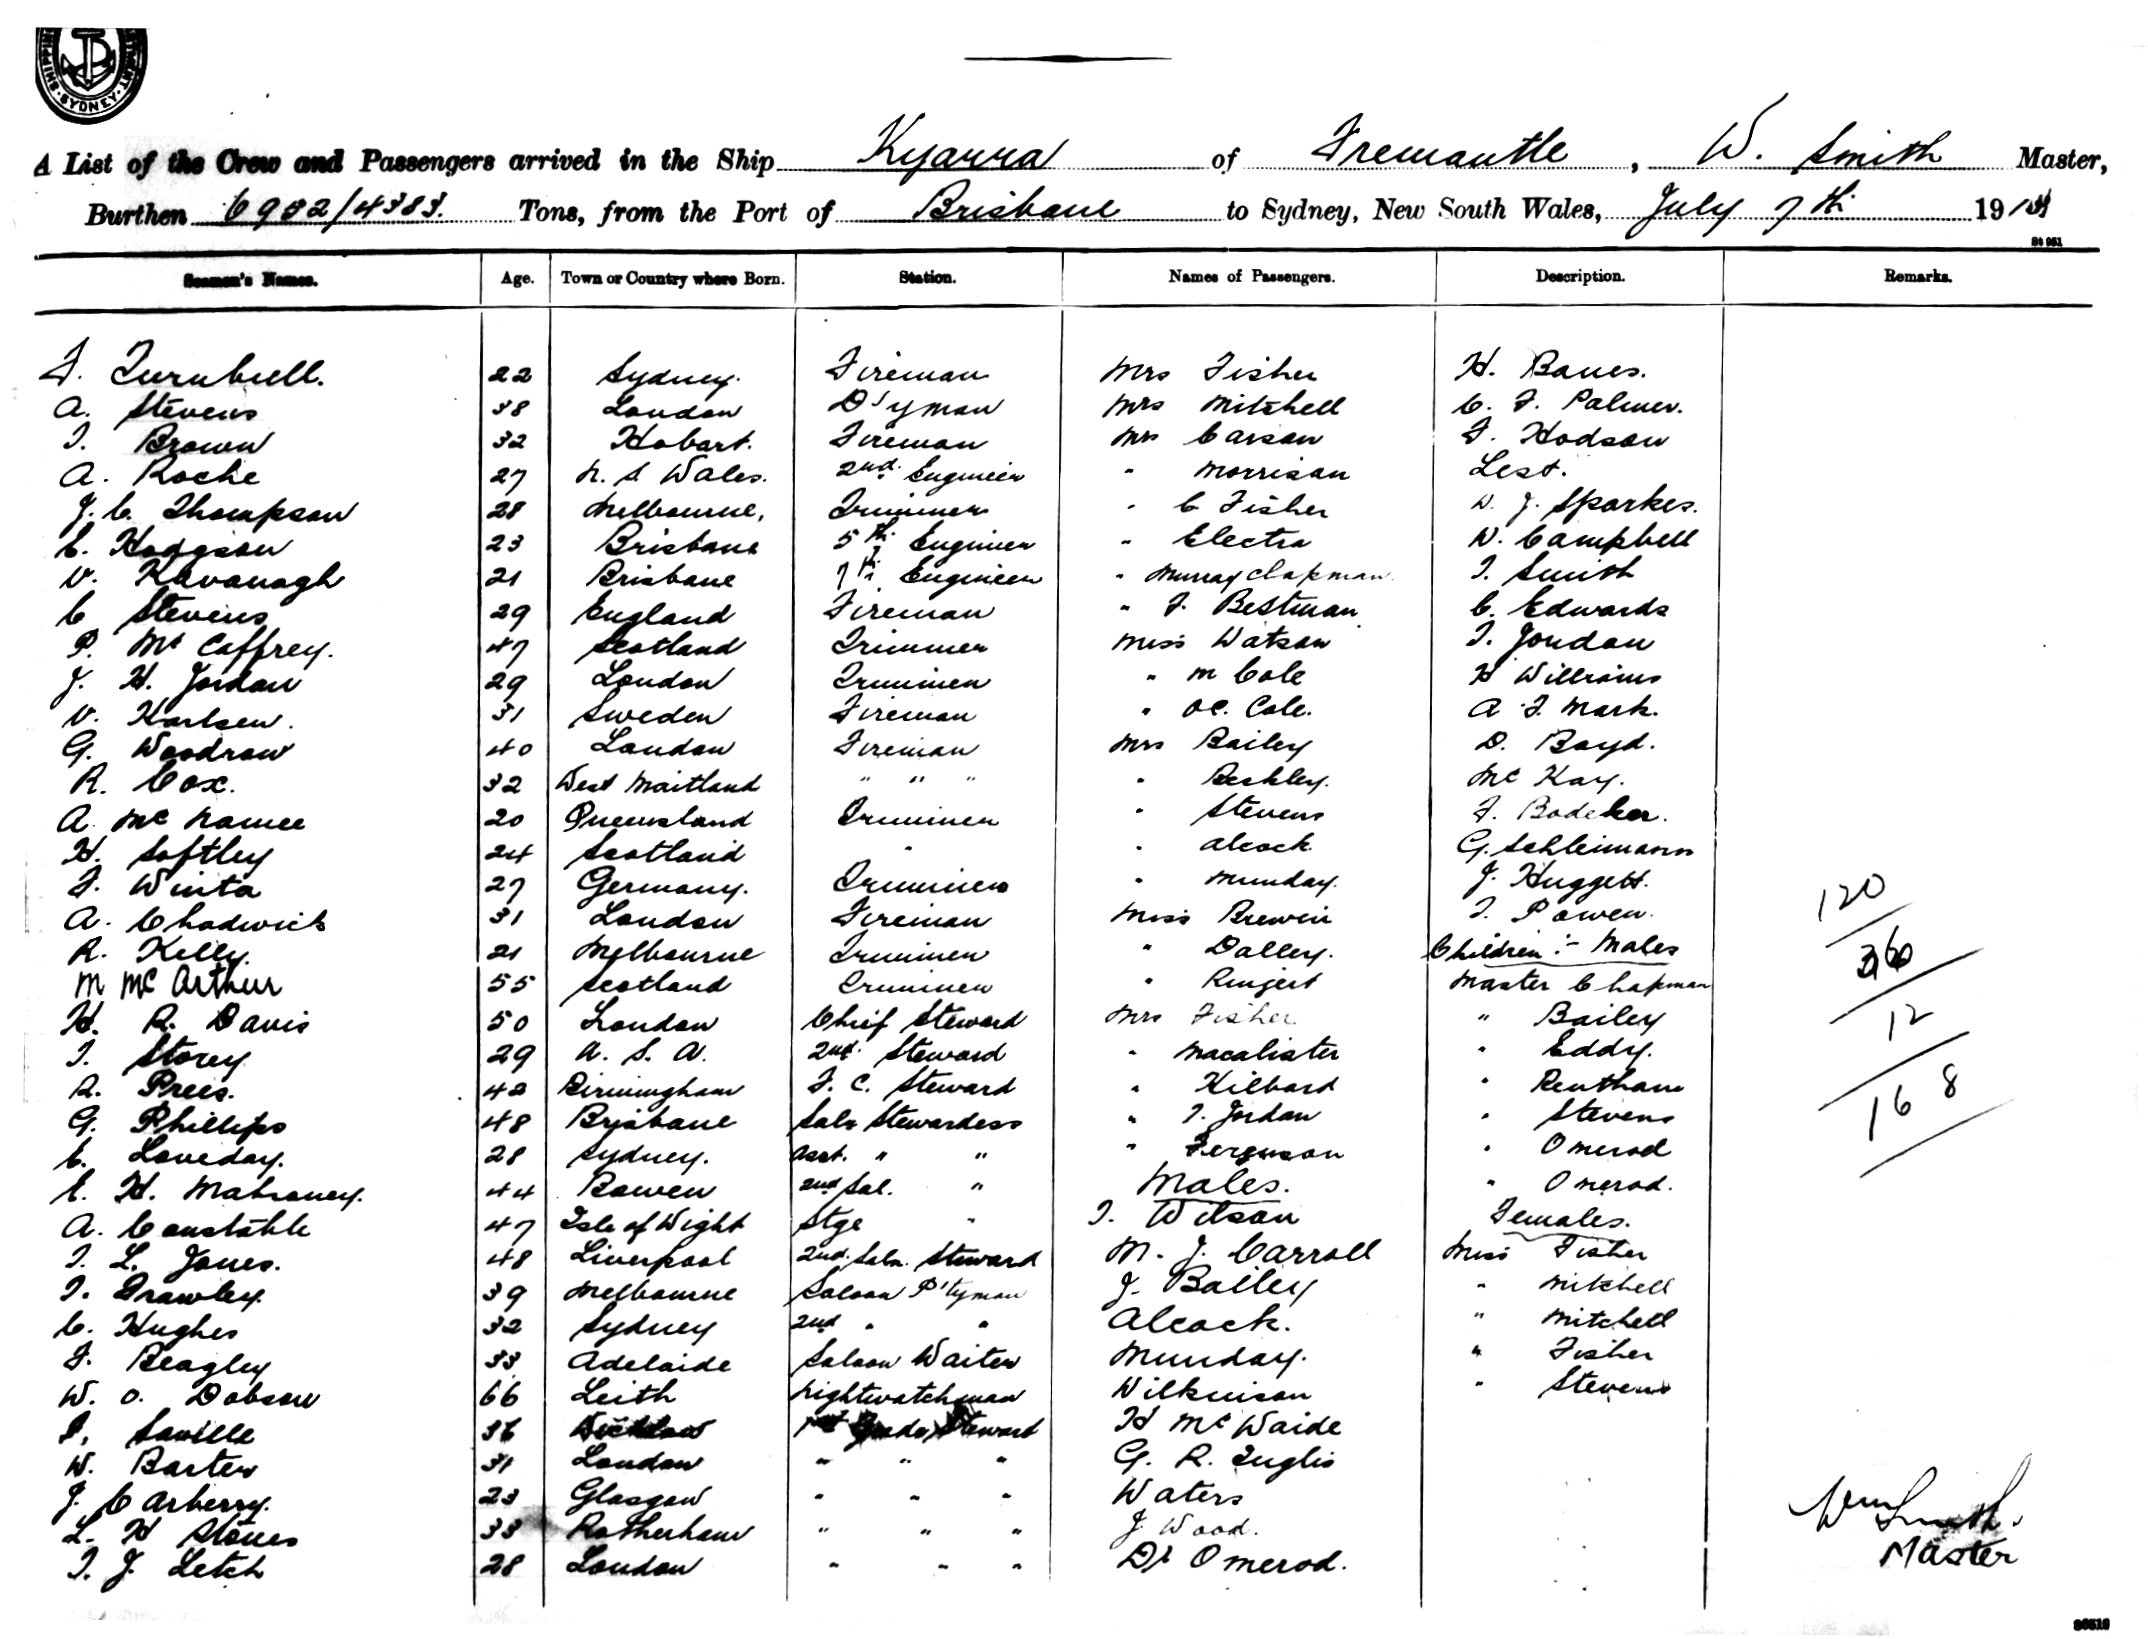 SYDNEY
A List of the Crew and Passengers arrived in the Ship Kyarra of Fremantle, W. Smith Master,
Burthen 6952/4383. Tons, from the Port of Brisbane to Sydney, New South Wales, July 7th 191
St 961
Seamen's Names. Age. Town or Country where Born. Station. Names of Passengers. Description. Remarks.
F. Turnbull. 22 Sydney. Fireman Mrs Fisher H. Banes.
A. Stevens 38 London D'yman Mrs Mitchell C. F. Palmer.
T. Brown 32 Hobart. Fireman Mrs Carson F. Hodson
A. Roche 27 N. S Wales. 2nd. Engineer " Morrison Lest.
J. C. Thompson 28 Melbourne, Trimmer " C Fisher W. J. Sparkes.
E. Hodgson 23 Brisbane 5th Engineer " Electra W. Campbell
V. Kavanagh 21 Brisbane 7th Engineer " Murray Chapman. T. Smith
C Stevens 29 England Fireman " F. Bestman C. Edwards
P. Mc Caffrey. 47 Scotland Trimmer Miss Watson T. Jondan
J. H. Jordan 29 London Trimmer " M Cole H Williams
V. Karlsen. 31 Sweden Fireman " OC. Cole. A. F. Mark.
G. Woodrow 40 London Fireman Mrs Bailey D. Boyd.
R. Cox. 32 West Maitland " " " " Beckley. Mc Kay.
A. Mc Namee 20 Queensland Trimmer " Stevens F. Bodeker.
H. Softley 24 Scotland " " Alcock G. Schleimann
F. Winta 27 Germany. Trimmer " Munday. J. Huggett.
A. Chadwick 31 London Fireman Miss Brewin T. Power.
120
R. Kelly. 21 Melbourne Trimmer " Dalley. Children :- Males
36
M Mc Arthur 55 Scotland Trimmer " Ringert Master Chapman
H. R. Davis 50 London Chief Steward Mrs Fisher " Bailey
12
T. Storey 29 A. S. A. 2nd. Steward " Macalister " Eddy.
R. Prees. 42 Birmingham F. C. Steward " Hilbard " Rentham
168
G. Phillips 48 Brisbane Saln Stewardess " T. Jordan " Stevens
C. Loveday. 28 Sydney. Asst. " " " Ferguson " Omerod
E. H. Mahroney. 44 Bowen 2nd Sal. " Males. " Omerod.
A. Constable 47 Isle of Wight Stge " T. Wilson Females.
T. L. Jones. 48 Liverpool 2nd. Saln. Steward M. J. Carroll Miss Fisher
T. Brawley. 39 Melbourne Saloon P'tyman J. Bailey " Mitchell
C. Hughes 32 Sydney 2nd " " Alcock. " Mitchell
F. Beagley 33 Adelaide Saloon Waiter Munday. " Fisher
W. O. Dobson 66 Leith Nightwatchman Wilkinson " Stevens
Saville 36 Grade Steward H McWaide
W. Barter 31 London " " " G. R. Inglis
J. Carberry. 23 Glasgow " " " Waters
L. H Stones 33 Rotherham " " " J Wood.
Wm Smith.
T. J. Letch 28 London " " " Dr Omerod.
Master